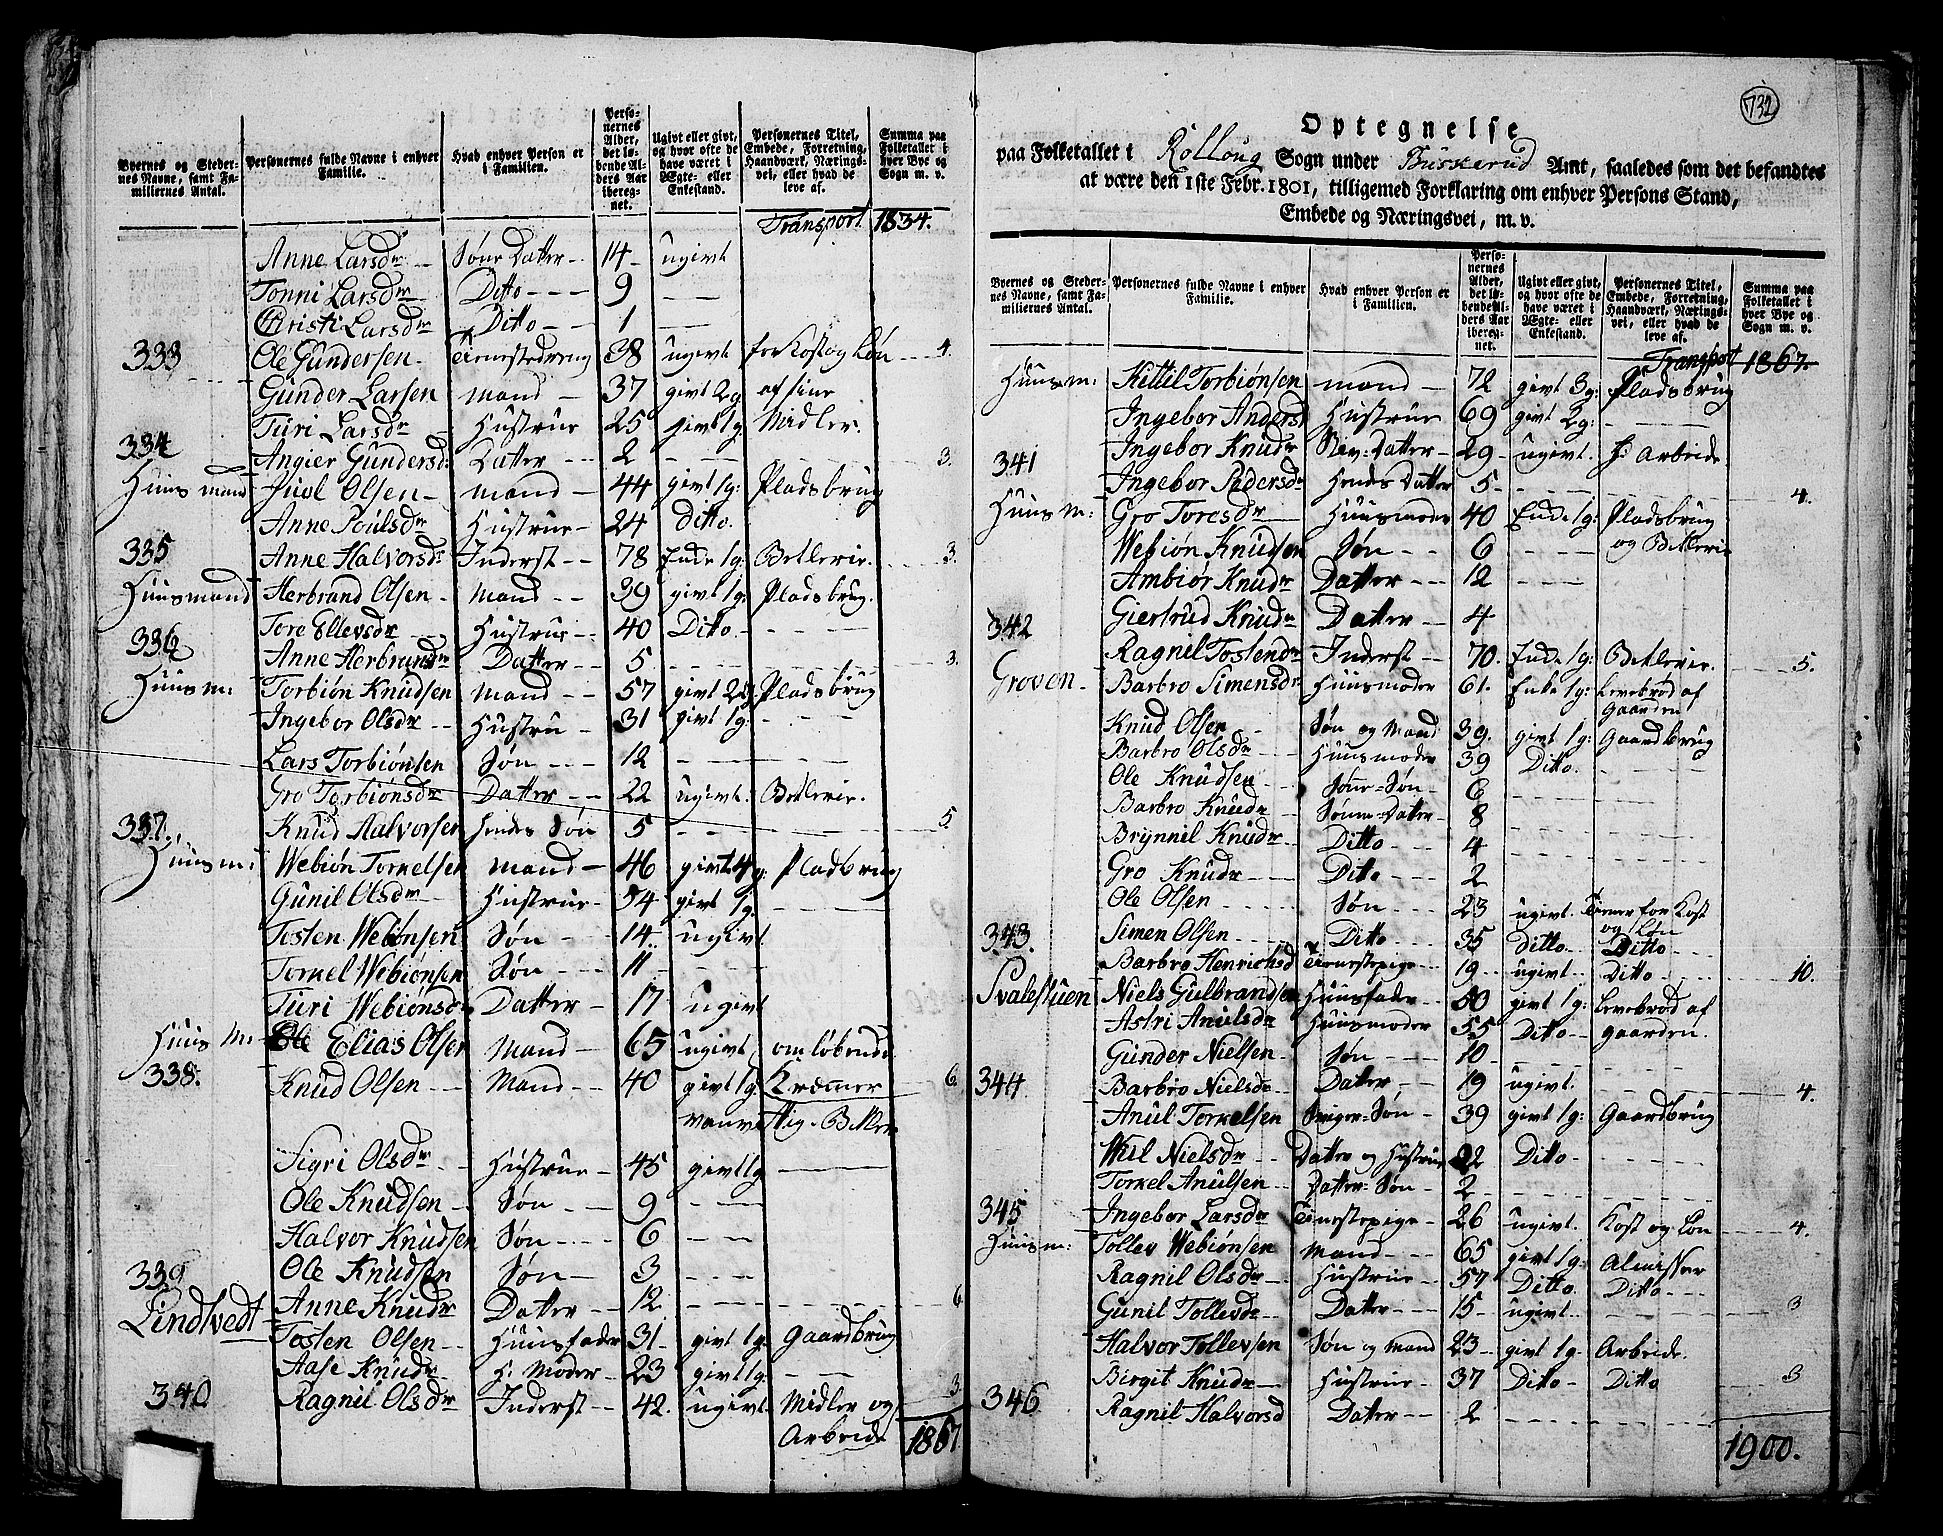 Byernes og Steder-
nes Navne, samt Fa-
miliernes Antal.
Personernes fulde Navne i enhver
Familie.
Hvad enhver Person er
i Familien.
Perso-
nernes
Alder,
det lø-
bende Al-
ders Aar
ibereg-
net.
Ugivt eller givt,
og hvor ofte de
have været i
Ægte- eller
Enkestand.
Personernes Titel,
Embede, Forretning,
Haandværk, Nærings-
vei, eller hvad de
leve af.
Summa paa
Folketallet i
hver Bye og
Sogn m. v.
Transport 1834.
Anne Larsdr Søne Datter 14 ugivt
Tonni Larsdr Ditto 9
Christi Larsdr Ditto 1
333 Ole Gundersen Tienestedreng 38 ugivt for Kost og Løn 4.
Gunder Larsen Mand 37 givt 2g af sine
Turi Larsdr Hustrue 25 givt 1g: Midler.
334 Angier Gundersd: Datter 2 3.
Huusmand Juvl Olsen Mand 44 givt 1g: Pladsbrug
Anne Poulsdr Hustrue 24 Ditto.
335 Anne Halvorsdr Inderst 78 Enke 1g: Betlerie. 3.
Huusmand Herbrand Olsen Mand 39 givt 1g: Pladsbrug.
Tore Ellevsdr Hustrue 40 Ditto
336 Anne Herbrandsdr Datter 5 3.
Huusm: Torbiøn Knudsen Mand 57 givt 2g Pladsbrug
Ingebor Olsdr Hustru 31 givt 1g:
Lars Torbiønsen Søn 12
Gro Torbiønsdr Datter 22 ugivt. Betlerie.
337. Knud Halvorsen Hendes Søn 5 5.
Huusm: Webiøn Torkelsen Mand 46 givt 4g: Pladsbrug
Gunil Olsdr Hustrue 54 givt 1g.
Tosten Webiønsen Søn 14 ugivt
Torkel Webiønsen Søn 11
Turi Webiønsd Datter 17 ugivt
Huus M: Elias Olsen Mand 65 ugivt omløbende
338. Knud Olsen Mand 40 givt 1g Kræmer 6.
vanvittig. Betler
Sigri Olsdr Hustrue 45 givt 1g
Ole Knudsen Søn 9
Halvor Knudsen Søn 6
339 Ole Knudsen Søn 3
Anne Knudr Datter 12 6
Lindtvedt Tosten Olsen Huusfader 31 givt 1g Gaardbrug
Aase Knudr H: Moder 23 givt 1g
340 Ragnil Olsdr Inderst 42. ugivt. Midler og 3.
Arbeide 1867
732
Optegnelse
paa Folketallet i Rolloug Sogn under Buskerud Amt, saaledes som det befandtes
at være den 1ste Febr. 1801, tilligemed Forklaring om enhver Persons Stand,
Embede og Næringsvei, m. v.
Byernes og Steder-
nes Navne, samt Fa-
miliernes Antal.
Personernes fulde Navne i enhver
Familie.
Hvad enhver Person er
i Familien.
Perso-
nernes
Alder,
det lø-
bende Al-
ders Aar
ibereg-
net.
Ugivt eller givt,
og hvor ofte de
have været i
Ægte- eller
Enkestand.
Personernes Titel,
Embede, Forretning,
Haandværk, Nærings-
vei, eller hvad de
leve af.
Summa paa
Folketallet i
hver Bye og
Sogn m. v.
Transport 1867.
Huusm: Kittil Torbiønsen Mand 72 givt 3g: Pladsbrug
Ingebor Anders Hustrue 69 givt 2g:
Ingebor Knudr Stev-Datter 29 ugivt. H: Arbeide
341 Ingebor Pedersdr Hendes Datter 5 4.
Huusm: Gro Toresdr Huusmoder 40 Enke 1g: Pladsbrug
og Betlerie
Webiøn Knudsen Søn 6
Ambiør Knudr Datter 12
Giertrud Knudr Datter 4
342 Ragnil Tostendr Inderst 70. Enke 1g: Betlerie. 5.
Groven Barbro Simensdr Huusmoder 61. Enke 1g: Levebrød af
Gaarden
Knud Olsen Søn og Mand 39. givt 1g: Gaardbrug
Barbro Olsdr Huusmoder 39 Ditto.
Ole Knudsen Søne-Søn 6
Barbro Knudr Sønne-Datter 8
Brynnil Knudr Ditto 4
Gro Knudr Ditto 2
Ole Olsen Søn 23 ugivt. Tiener for Kost
og Løn
343. Simen Olsen Ditto 35 ditto Ditto
Barbro Henrichsd Tienestepige 19 ugivt Ditto 10.
Svalestuen Niels Gulbrandsen Huusfader 50 givt 1g: Levebrød af
Astri Anulsdr Huusmoder 55 Ditto gaarden.
Gunder Nielsen Søn 10
344 Barbro Nielsdr Datter 19 ugivt. 4.
Anul Torkelsen Sviger-Søn 39 givt 1g: Gaardbrug
Nielsdr Datter og Hustrue 22 Ditto
Torkel Anulsen Datter-Søn 2
345 Ingebor Larsdr Tienestepige 26 ugivt. Kost og Løn 4.
Huusm: Tollev Webiønsen Mand 65 givt 1g: Almisser
Ragnil Olsdr Hustrue 57 Ditto Ditto
Gunil Tollevdr Datter 15 ugivt 3
Halvor Tollevsen Søn og Mand 23 givt 1g Arbeide.
Birgit Knudr Hustrue 37 Ditto Ditto 3
346 Ragnil Halvorsd Datter 2
1900.